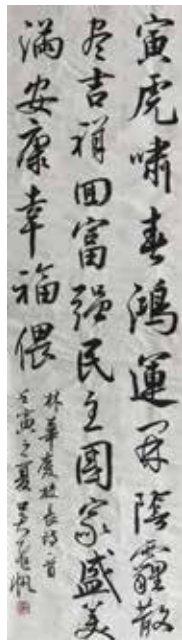 寅虎啸春鸿運開陰霾散
尽吉祥回富强民主国家盛美
满安康幸福偎
林华庆校长诗一首
壬寅之夏吴